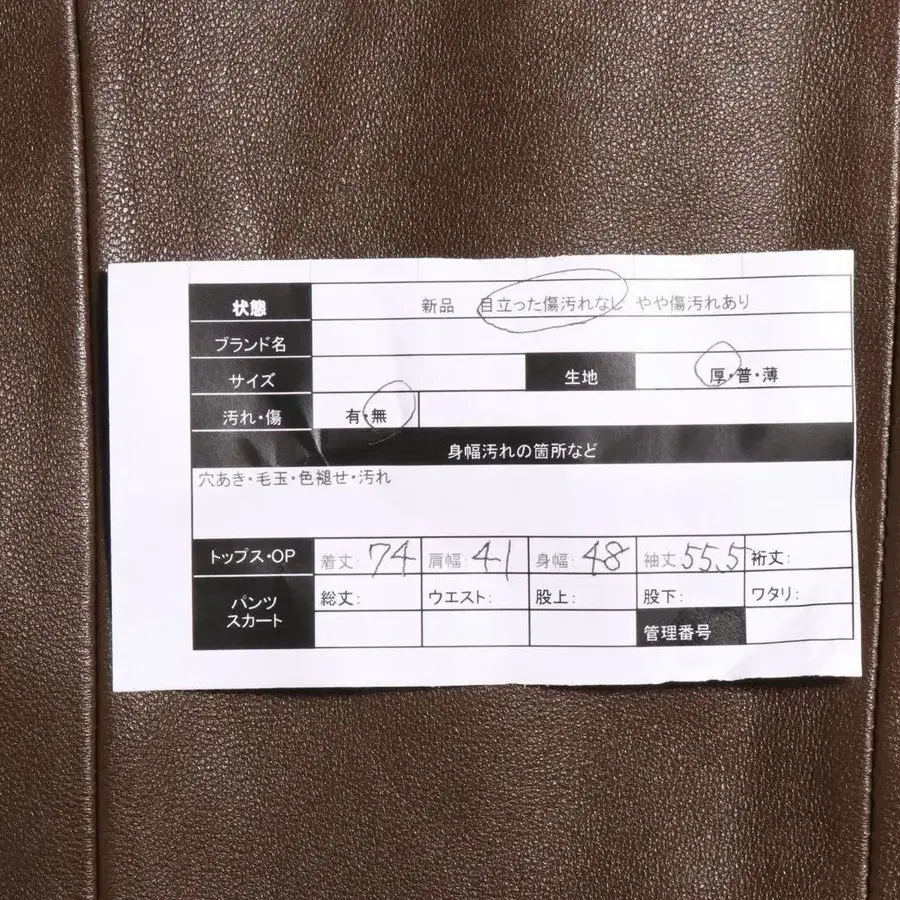 状態 新品 目立った傷汚れなし やや傷汚れあり
ブランド名
サイズ 生地 厚・普・薄
汚れ・傷 有・無
身幅汚れの箇所など
穴あき・毛玉・色褪せ・汚れ
トップス・OP 着丈: 74 肩幅: 41 身幅: 48 袖丈 55.5 裄丈:
パンツ スカート 総丈: ウエスト: 股上: 股下: ワタリ:
管理番号